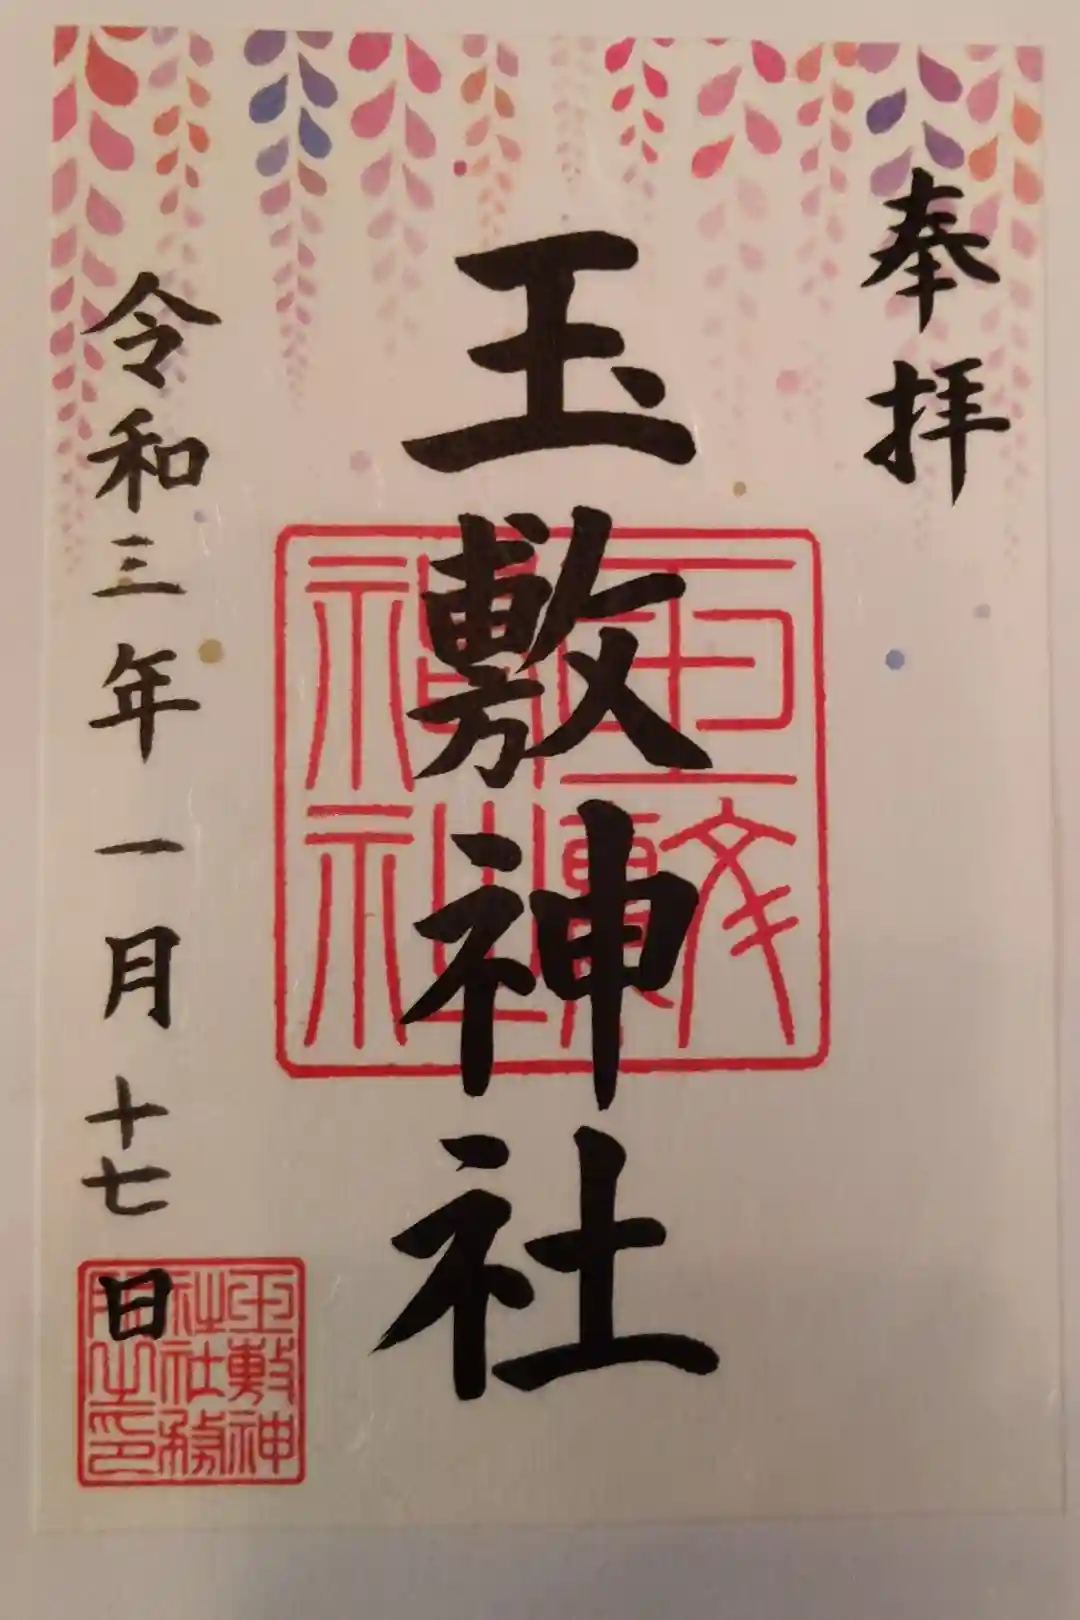 奉拝
玉敷神社
令和三年一月十七日
玉敷神社
玉敷神
社社務
所之印